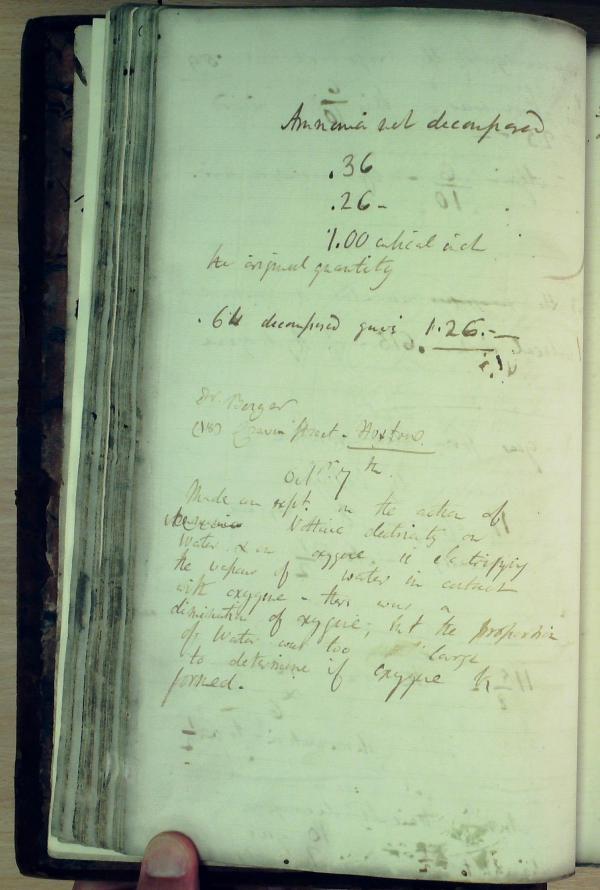 Ammonia not decomposed
.36
.26 -
1.00 cubical inch
the original quantity
.64 decomposed gave 1.26.-
Dr. Berger
(18) Craven Street - Hoxton.
Octbr 7th
Made an expt. on the action of
Voltaic electricity on
Water & on oxygene ie electrifying
the vapour of water in contact
with oxygene - there was a
diminution of oxygene; but the proportion
of Water was too large
to determine if oxygene
formed.